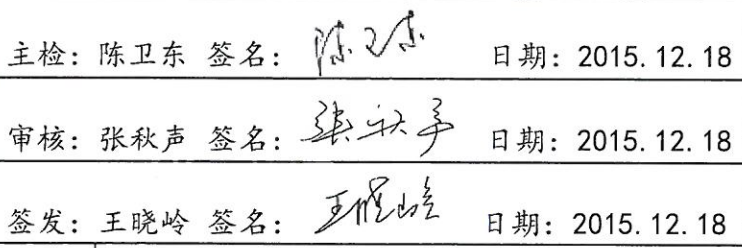 主检: 陈卫东 签名: 陈卫东 日期: 2015.12.18
审核: 张秋声 签名: 张秋声 日期: 2015.12.18
签发: 王晓岭 签名: 王晓岭 日期: 2015.12.18